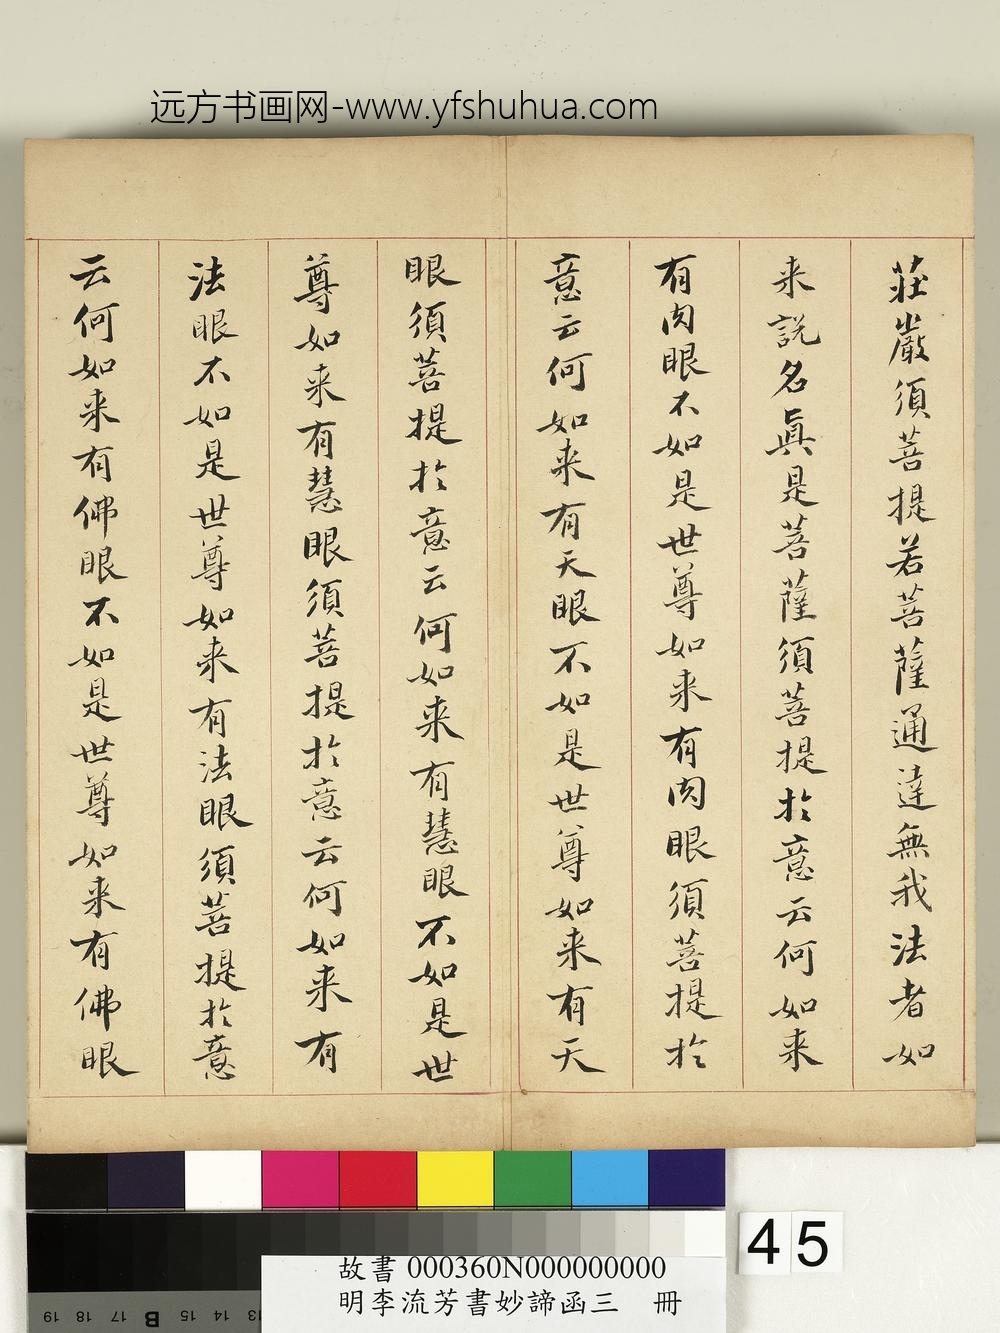 远方书画网-www.yfshuhua.com
莊嚴須菩提若菩薩通達無我法者如
来說名眞是菩薩須菩提於意云何如来
有肉眼不如是世尊如来有肉眼須菩提於
意云何如来有天眼不如是世尊如来有天
眼須菩提於意云何如来有慧眼不如是世
尊如来有慧眼須菩提於意云何如来有
法眼不如是世尊如来有法眼須菩提於意
云何如来有佛眼不如是世尊如来有佛眼
45
19 18 17 B 15 14 13
故書 000360N000000000
明李流芳書妙諦函三 冊